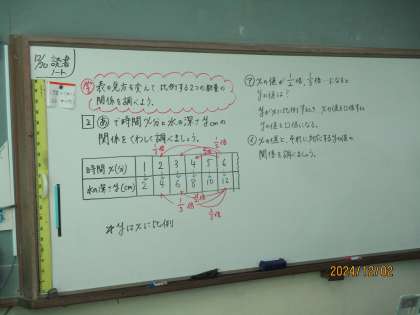 12/10 読者
ノート
㋱ 表の見方を学んで比例する2つの数量の
関係を調べよう。
2 あ で時間x分と水の深さycmの
関係をくわしく調べましょう。
1/2倍 1/3倍
時間x(分) 1 2 3 4 5 6
水の深さy(cm) 2 4 6 8 10 12
1/2倍
1/3倍
yはxに比例
⑦ xの値が1/2倍、1/3倍…になると
yの値は?
yがxに比例するとき、xの値が□倍すると
yの値も□倍になる。
xの値と、それに対応するyの値の
関係を調べましょう。
2024/12/02